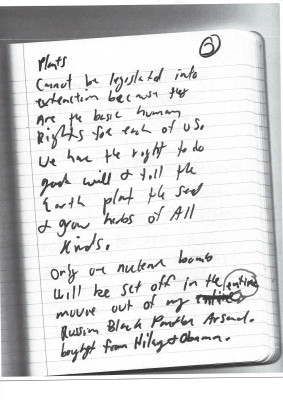 2
Plants
Cannot be legislated into
extenction because they
Are the basic human
Rights for each of us.
We have the right to do
good will & till the
Earth plant the seed
& grow herbs of All
Kinds.
Only one nuclear bomb
will be set off in the entire
movie out of my entire
Russian Black Panther Arsenal.
bought from Hilary & Obama.